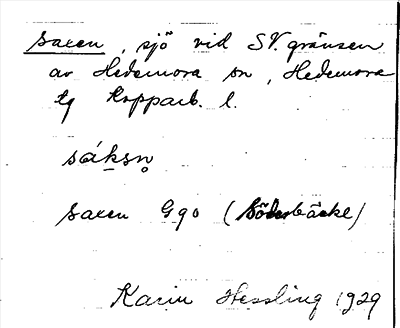 Saxen, sjö vid SV. gränsen
av Hedemora sn, Hedemora
tg Kopparb. l.
sáksn̥
Saxen Ggo (Söderbäcke)
Karin Hessling 1929